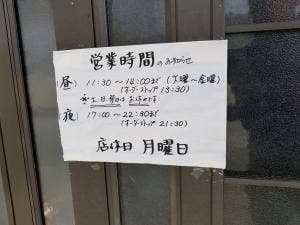 営業時間のお知らせ
(昼) 11:30 ～ 14:00まで (火曜～金曜)
(オーダーストップ 13:30)
※土、日、祭日は お休みです
(夜) 17:00 ～ 22:30まで
(オーダーストップ 21:30)
店休日 月曜日